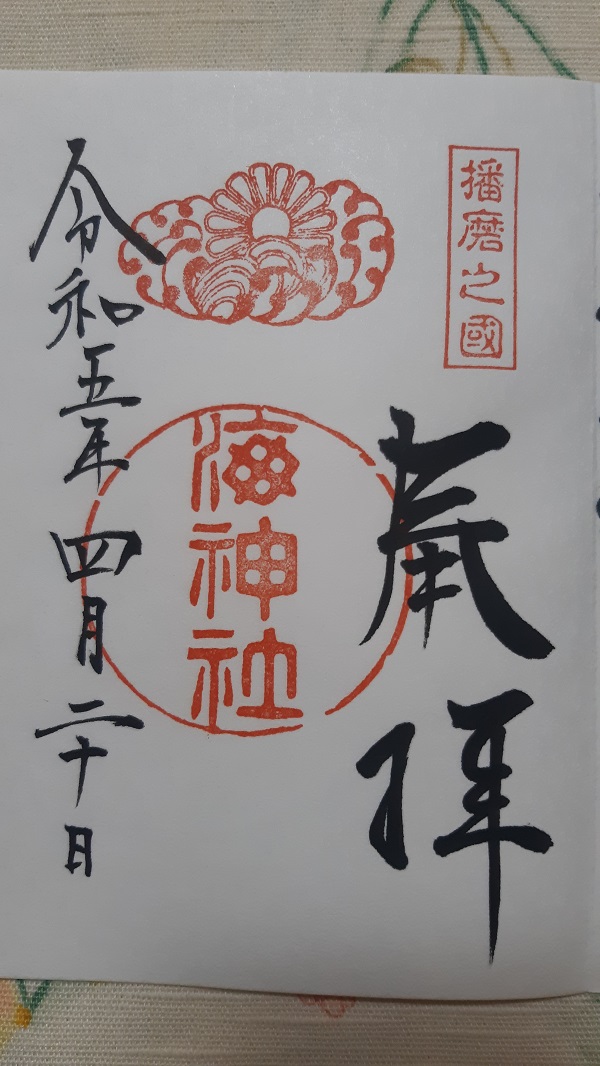 播磨之國
奉拝
海神社
令和五年四月二十日